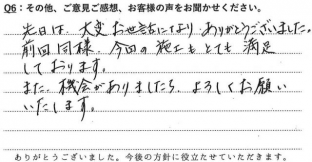 Q6：その他、ご意見ご感想、お客様の声をお聞かせください。
先日は、大変お世話になり ありがとうございました。
前回同様、今回の施工もとても満足
しております。
また、機会がありましたら、よろしくお願い
いたします。
ありがとうございました。今後の方針に役立たせていただきます。